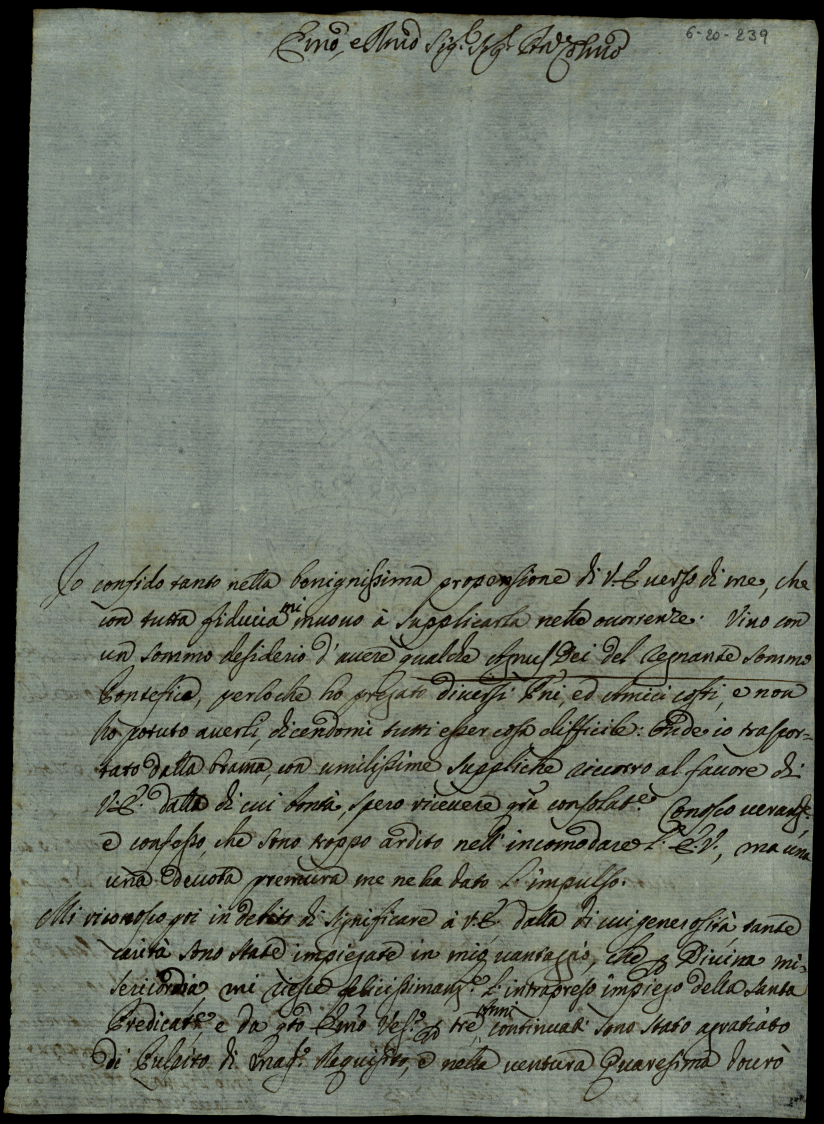 Emo, e Rmo Sig.r Sig.r Pad.e Colmo
6-20-239
Io confido tanto nella benignissima propensione di V.E. verso di me, che
con tutta fiducia mi muovo à supplicarla nelle occorrenze. Vivo con
un sommo desiderio d'avere qualche Agnus Dei del Regnante Sommo
Pontefice, perloche ho pregato diversi Pni, ed Amici costi, e non
ho potuto averli, dicendomi tutti esser cosa difficile: Onde io traspor-
tato dalla brama, con umilissime suppliche ricorro al favore di
V.E. dalla di cui bontà, spero ricevere gra consolat.e Conosco
e confesso, che sono troppo ardito nell'incomodare l'E.V., ma una
una devota premura me ne ha dato l'impulso.
Mi riconosco poi in debito di significare à V.E. dalla di cui generosità tante
carità sono state impiegate in mio vantaggio, che p Divina mi-
sericordia mi riesce felicissimam.e l'intrapreso impiego della Santa
Predicat.e e da qto Emo Vesc.o p trè Anni continuati sono stato agratiato
di Pulpito di Requisito, e nella ventura Quaresima dovrò